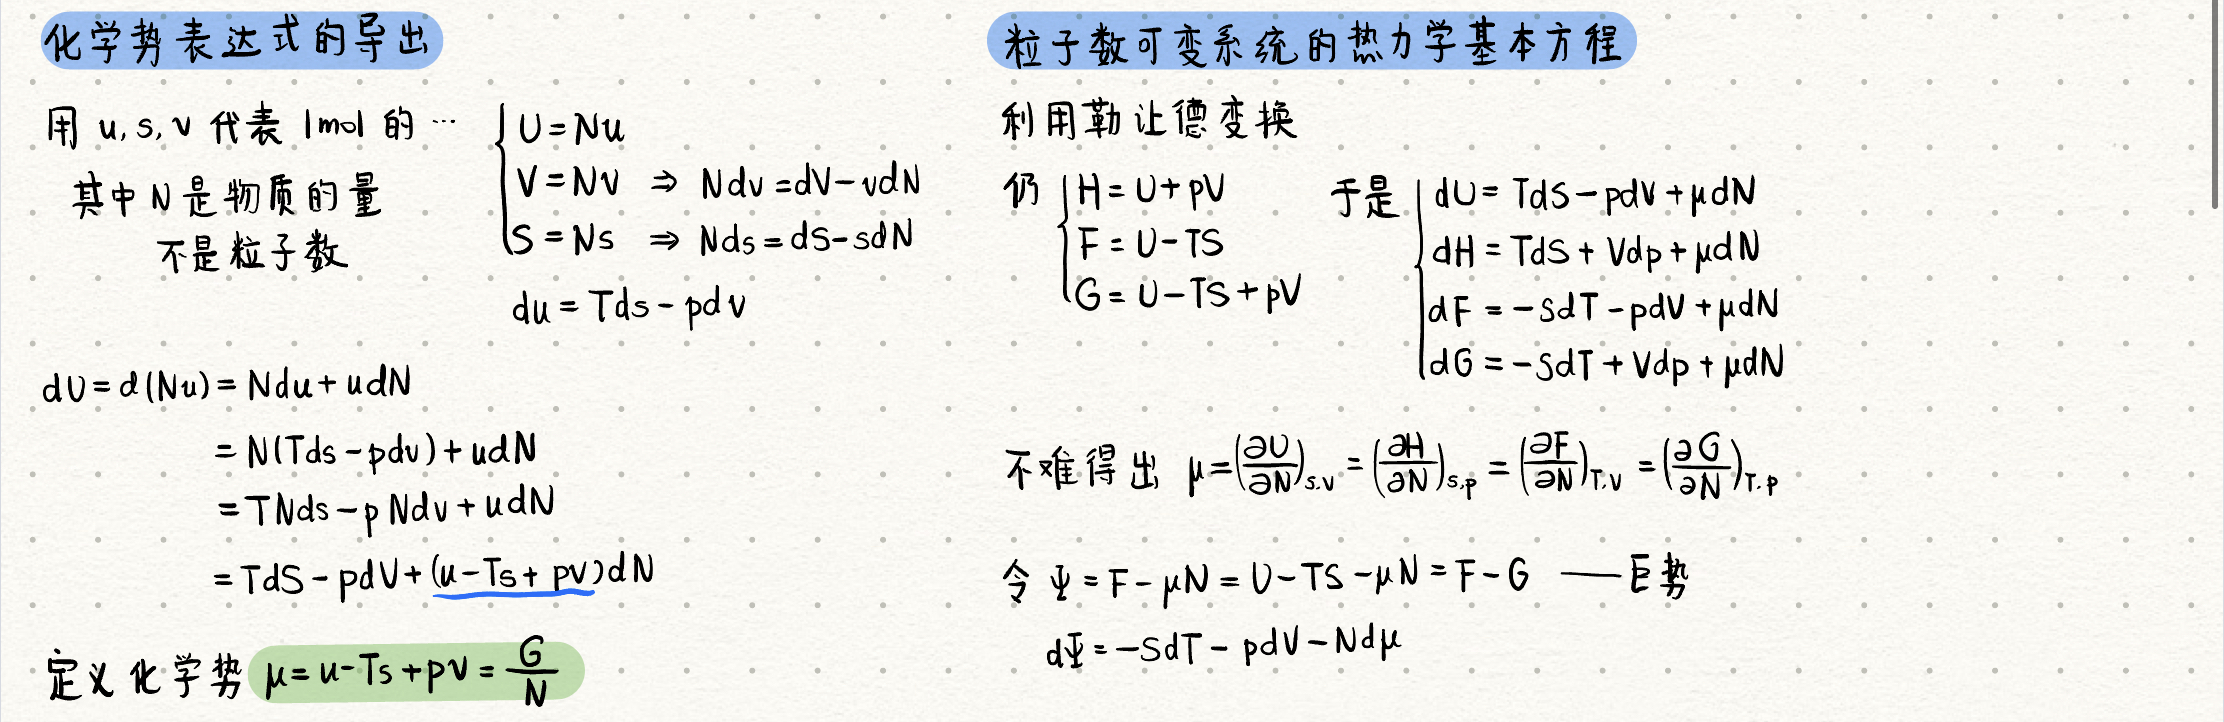 化学势表达式的导出
用 u, s, v 代表 1mol 的 …
其中 N 是物质的量
不是粒子数
U = Nu
V = Nv ⇒ Ndv = dV - vdN
S = Ns ⇒ Nds = dS - sdN
du = Tds - pdv
dU = d(Nu) = Ndu + udN
= N(Tds - pdv) + udN
= TNds - pNdv + udN
= TdS - pdV + (u - Ts + pv)dN
定义化学势 μ = u - Ts + pv = G/N
粒子数可变系统的热力学基本方程
利用勒让德变换
仍 { H = U + pV
F = U - TS
G = U - TS + pV
于是 { dU = TdS - pdV + μdN
dH = TdS + Vdp + μdN
dF = -SdT - pdV + μdN
dG = -SdT + Vdp + μdN
不难得出 μ = (∂U/∂N)s,v = (∂H/∂N)s,p = (∂F/∂N)T,V = (∂G/∂N)T,p
令 Ψ = F - μN = U - TS - μN = F - G —— 巨势
dΨ = -SdT - pdV - Ndμ